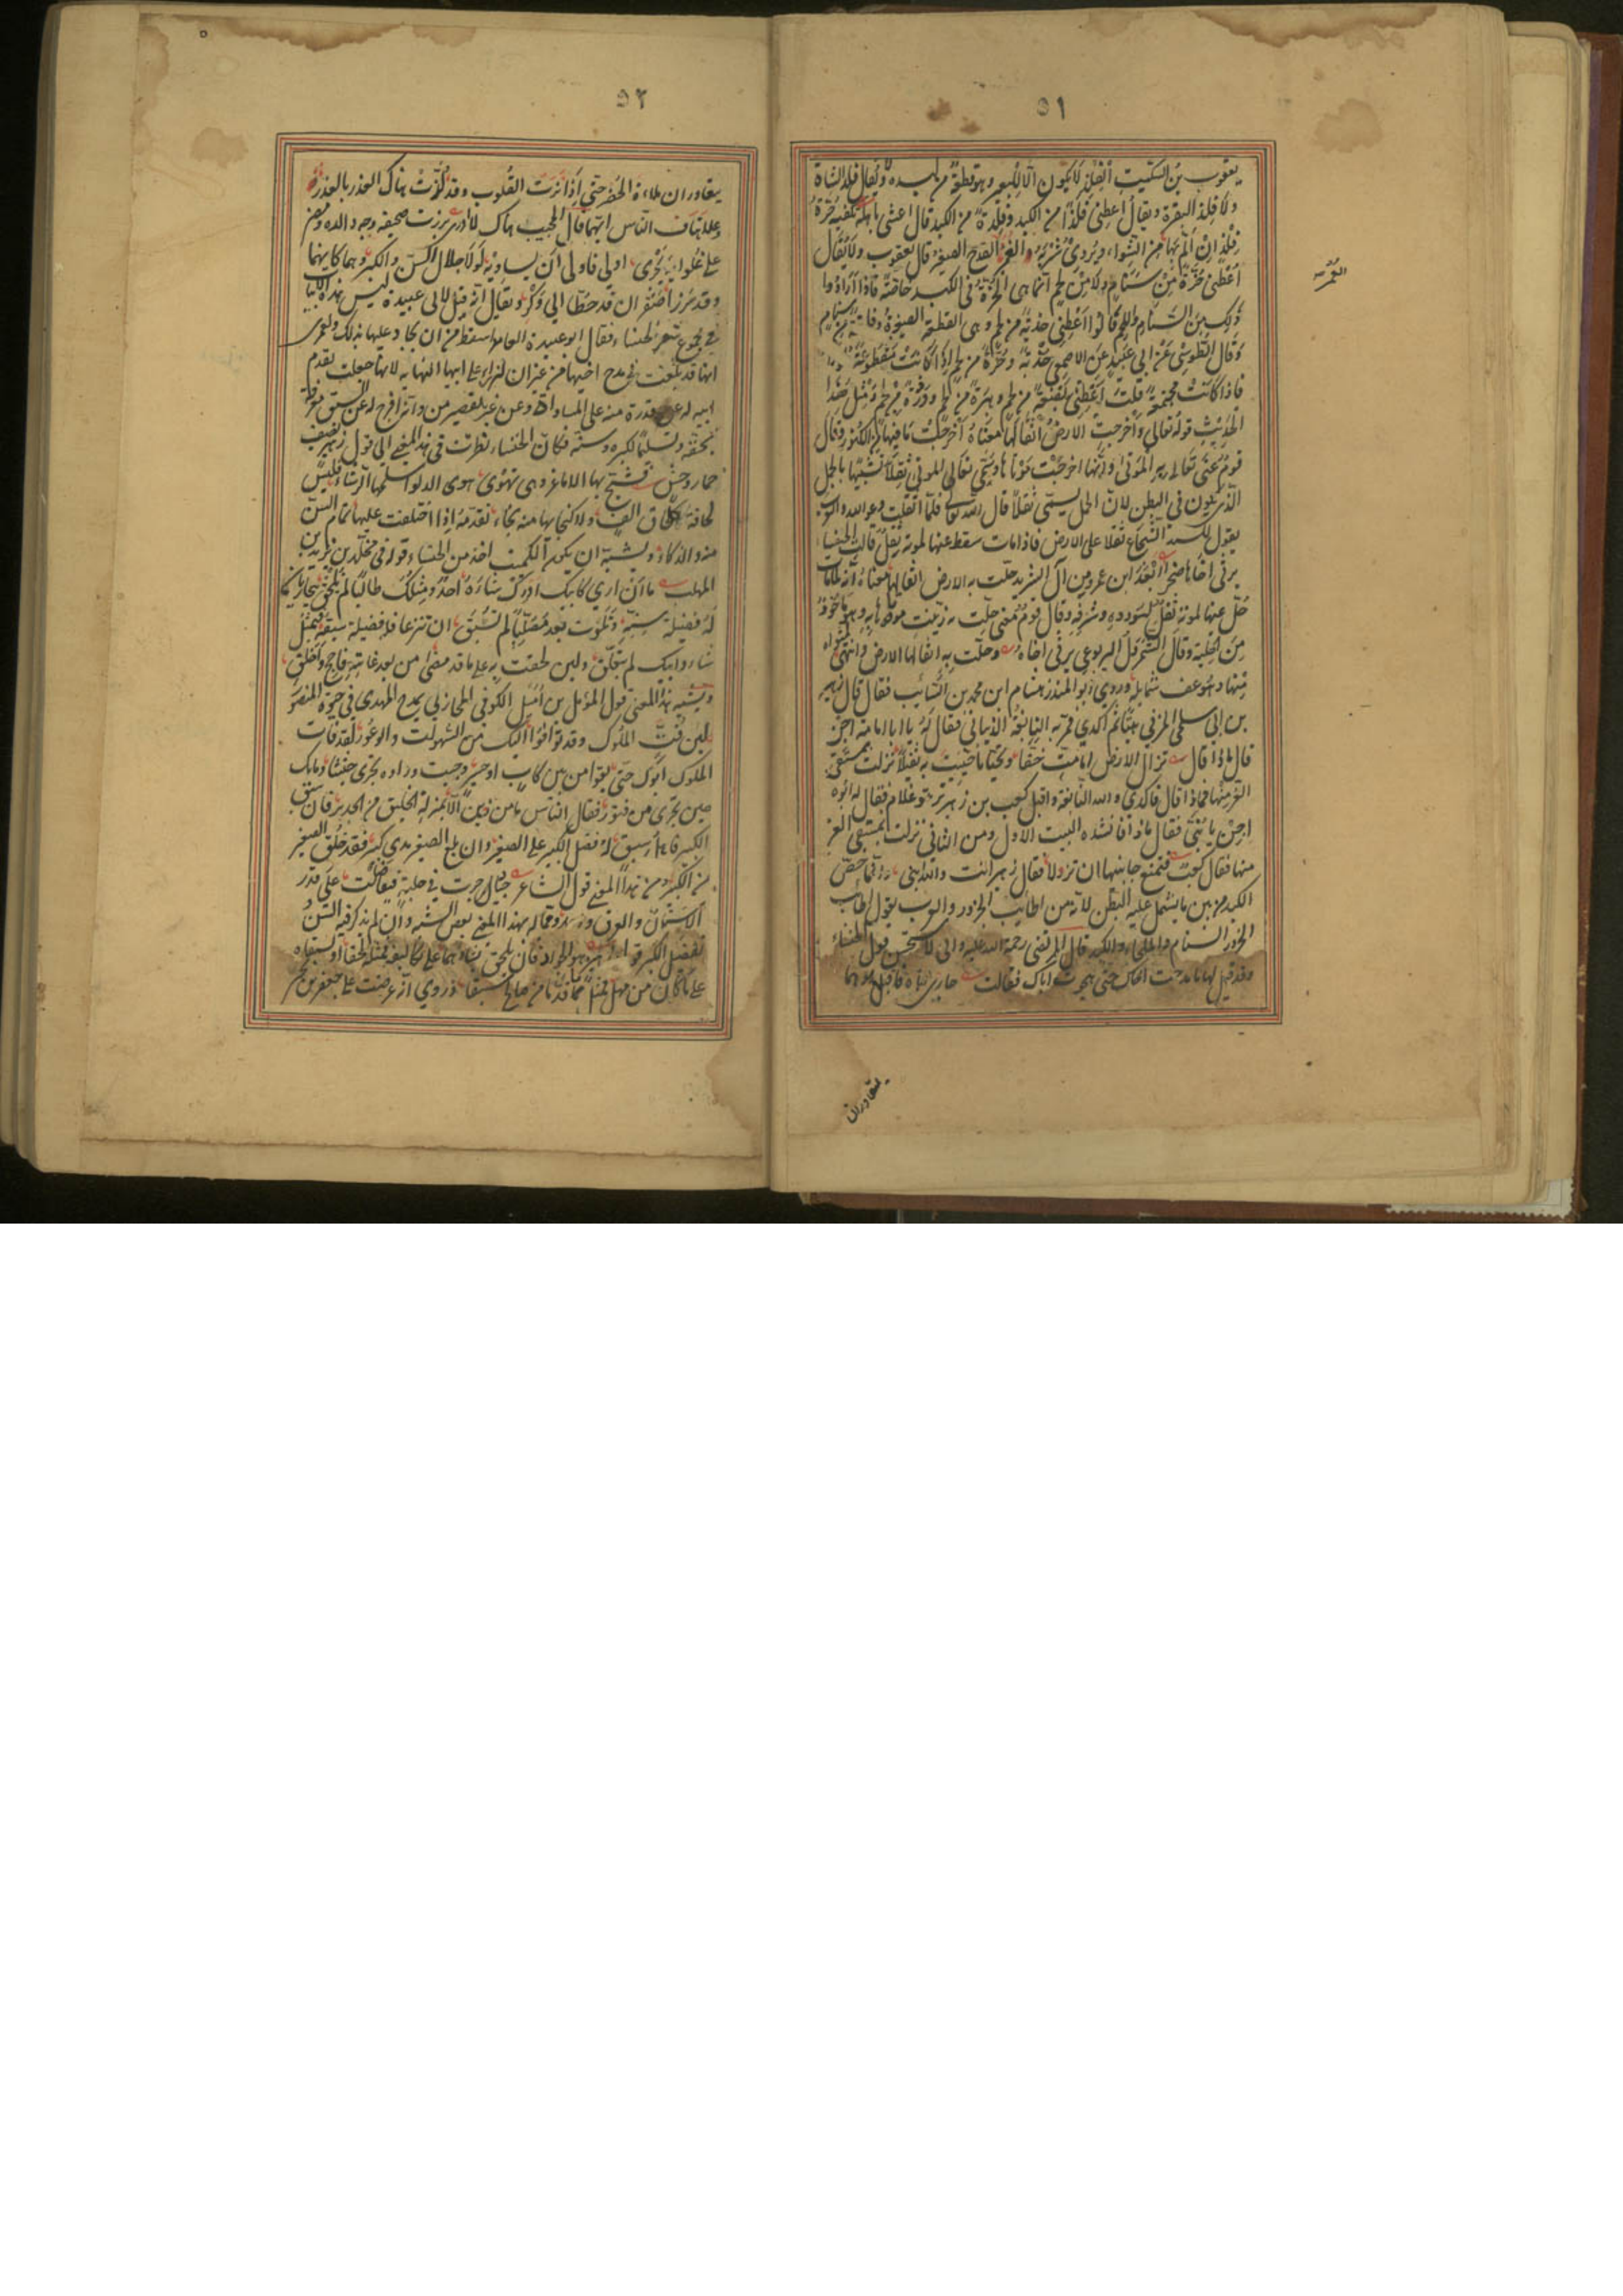 ٥١
يعقوب بن السكيت الفلذ لا يكون الا للبعير وهو قطعة من كبده ولا يقال فلذ الشاة
ولا فلذ البقرة ويقال اعطني فلذا من الكبد وفلذة من الكبد قال اعشى باهلة تكفيه حزة
فلذ ان الم بها من الشواء ويروى شربه الغمر الغمر القدح الصغير قال يعقوب ولا يقال
اعطني حزة من سنام ولا من لحم انما هي الحزة في الكبد خاصة فاذا ارادوا
ذلك من السنام واللحم قالوا اعطني حذية من لحم وهي القطعة الصغيرة
وقال الطوسي عن ابي عبيد عن الاصمعي حذية وحزة من لحم اذا كانت مقطوعة
فاذا كانت مجتمعة قلت اعطني بضعة من لحم وهبرة من لحم ووذرة من لحم ومثل هذا
الحديث قوله تعالى واخرجت الارض اثقالها معناه اخرجت ما فيها من الكنوز وقال
قوم عنى تعالى به الموتى وانها اخرجت موتاها وسمى تعالى الموتى ثقلا تشبيها بالحمل
الذي يكون في البطن لان الحمل يسمى ثقلا قال الله تعالى فلما اثقلت دعوا الله والعرب
يقول للسيد الشجاع ثقلا على الارض فاذا مات سقط عنها لموته ثقل قالت الخنساء
ترثي اخاها صخرا ابعد ابن عمرو من آل الشريد حلت به الارض اثقالها معناه انه لما مات
حل عنها لموته ثقل لسودده وشرفه وقال قوم معنى حلت زينت موتاها به وهو ماخوذ
من الحلية وقال الشمردل اليربوعي يرثي اخاه وحلت به اثقالها الارض وانتهى لمثواه
منها وهو عف شمايله وروى ابو المنذر هشام ابن محمد بن السائب فقال قال زهير
بن ابي سلمى المزني بيتا ثم اكدى فمر به النابغة الذبياني فقال له يا ابا امامة اجز
قال ماذا قال تزال الارض اما مت خفا وتحيا ما حييت به ثقيلا نزلت بمستقى
العز منها فماذا قال فاكدى والله النابغة واقبل كعب بن زهير وهو غلام فقال له ابوه
اجز يا بني فقال ماذا فانشده البيت الاول ومن الثاني نزلت بمستقى العز
منها فقال كعب فتمنع جانبيها ان تزولا فقال زهير انت والله ابني وانما خص
الكبد من بين ما يشتمل عليه البطن لانه من اطايب الجزور والعرب يقول اطايب
الجزور السنام والملحاء والكبد قال المرتضى رحمة الله عليه واني لاستحسن قول الخنساء
وقد قيل لها ما مدحت اخاك حتى هجوت اباك فقالت جارى اباه فاقبلا وهما
يتعاوران
٥٢
يتعاوران ملاءة الحضر حتى اذا نزت القلوب وقد لزت هناك العذر بالعذر
وعلا هتاف الناس ايهما قال المجيب هناك لا ادري برزت صحيفة وجه والده ومضى
على غلوائه يجري اولى فاولى ان يساويه لولا جلال السن والكبر وهما كانهما
وقد برزا صقران قد حطا الى وكر ويقال انه قيل لابي عبيدة ليس هذه الابيات
في مجموع شعر الخنساء فقال ابو عبيدة العامة اسقط من ان يجاد عليها بذلك ولعمرى
انها قد بلغت في مدح اخيها من غير ان ازراء على ابيها النهاية لانها جعلت تقدم
ابيه له عن قدرة منه على المساواة وعن غير تقصير من وانما افرج له عن السبق معرفة
بحقه وتسليما لكبره وسنه فكان الخنساء نظرت في هذا المعنى الى قول زهير يصف
حمار وحش فشج بها الاماعز وهي تهوي هوى الدلو اسلمها الرشاء فليس
لحاقه كلحاق الف ولا كنجائها منه نجاء تقدمه اذا اختلفت عليها تمام السن
منه والذكاء ويشبه ان يكون الكميت اخذ من الخنساء قوله في مخلد بن يزيد بن
المهلب ما ان ارى كابيك ادرك شاوه احد ومثلك طالبا لم يلحق يتجاريان
له فضيلة سنه وتلوت بعد مصليا لم تسبق ان تنزعا فله فضيلة سبقه فبمثل
شاو ابيك لم يتعلق ولئن لحقت به على ما قد مضى من بعد غايته فاحج واخلق
ويشبه هذا المعنى قول المؤمل بن اميل الكوفي المحاربي يمدح المهدي في حيوة المنصور
لئن فت الملوك وقد توافوا اليك من السهولة والوعور لقد فات
الملوك ابوك حتى بقوا من بين كاب او حسير وجيت وراءه تجري حثيثا وما بك
حين تجري من فتور فقال الناس ما من ذين الا بمنزلة الخليق من الجدير فان سبق
الكبير فاهل سبق له فضل الكبير على الصغير وان بلغ الصغير مدى كبير فقد خلق الصغير
من الكبير ومن هذا المعنى قول الشاعر جياد جرت في حلبة فتفاضلت على قدر
الاسنان والعرق واحد ومما له بهذا المعنى بعض الشبه وان لم يذكر فيه السن
تفضيل الكبير قول زهير هو الجواد فان يلحق بشاوهما على تكاليفه فمثله لحقا او يسبقاه
على ما كان من مهل فمثل ما قدما من صالح سبقا وروى انه عرضت على جعفر بن يحيى